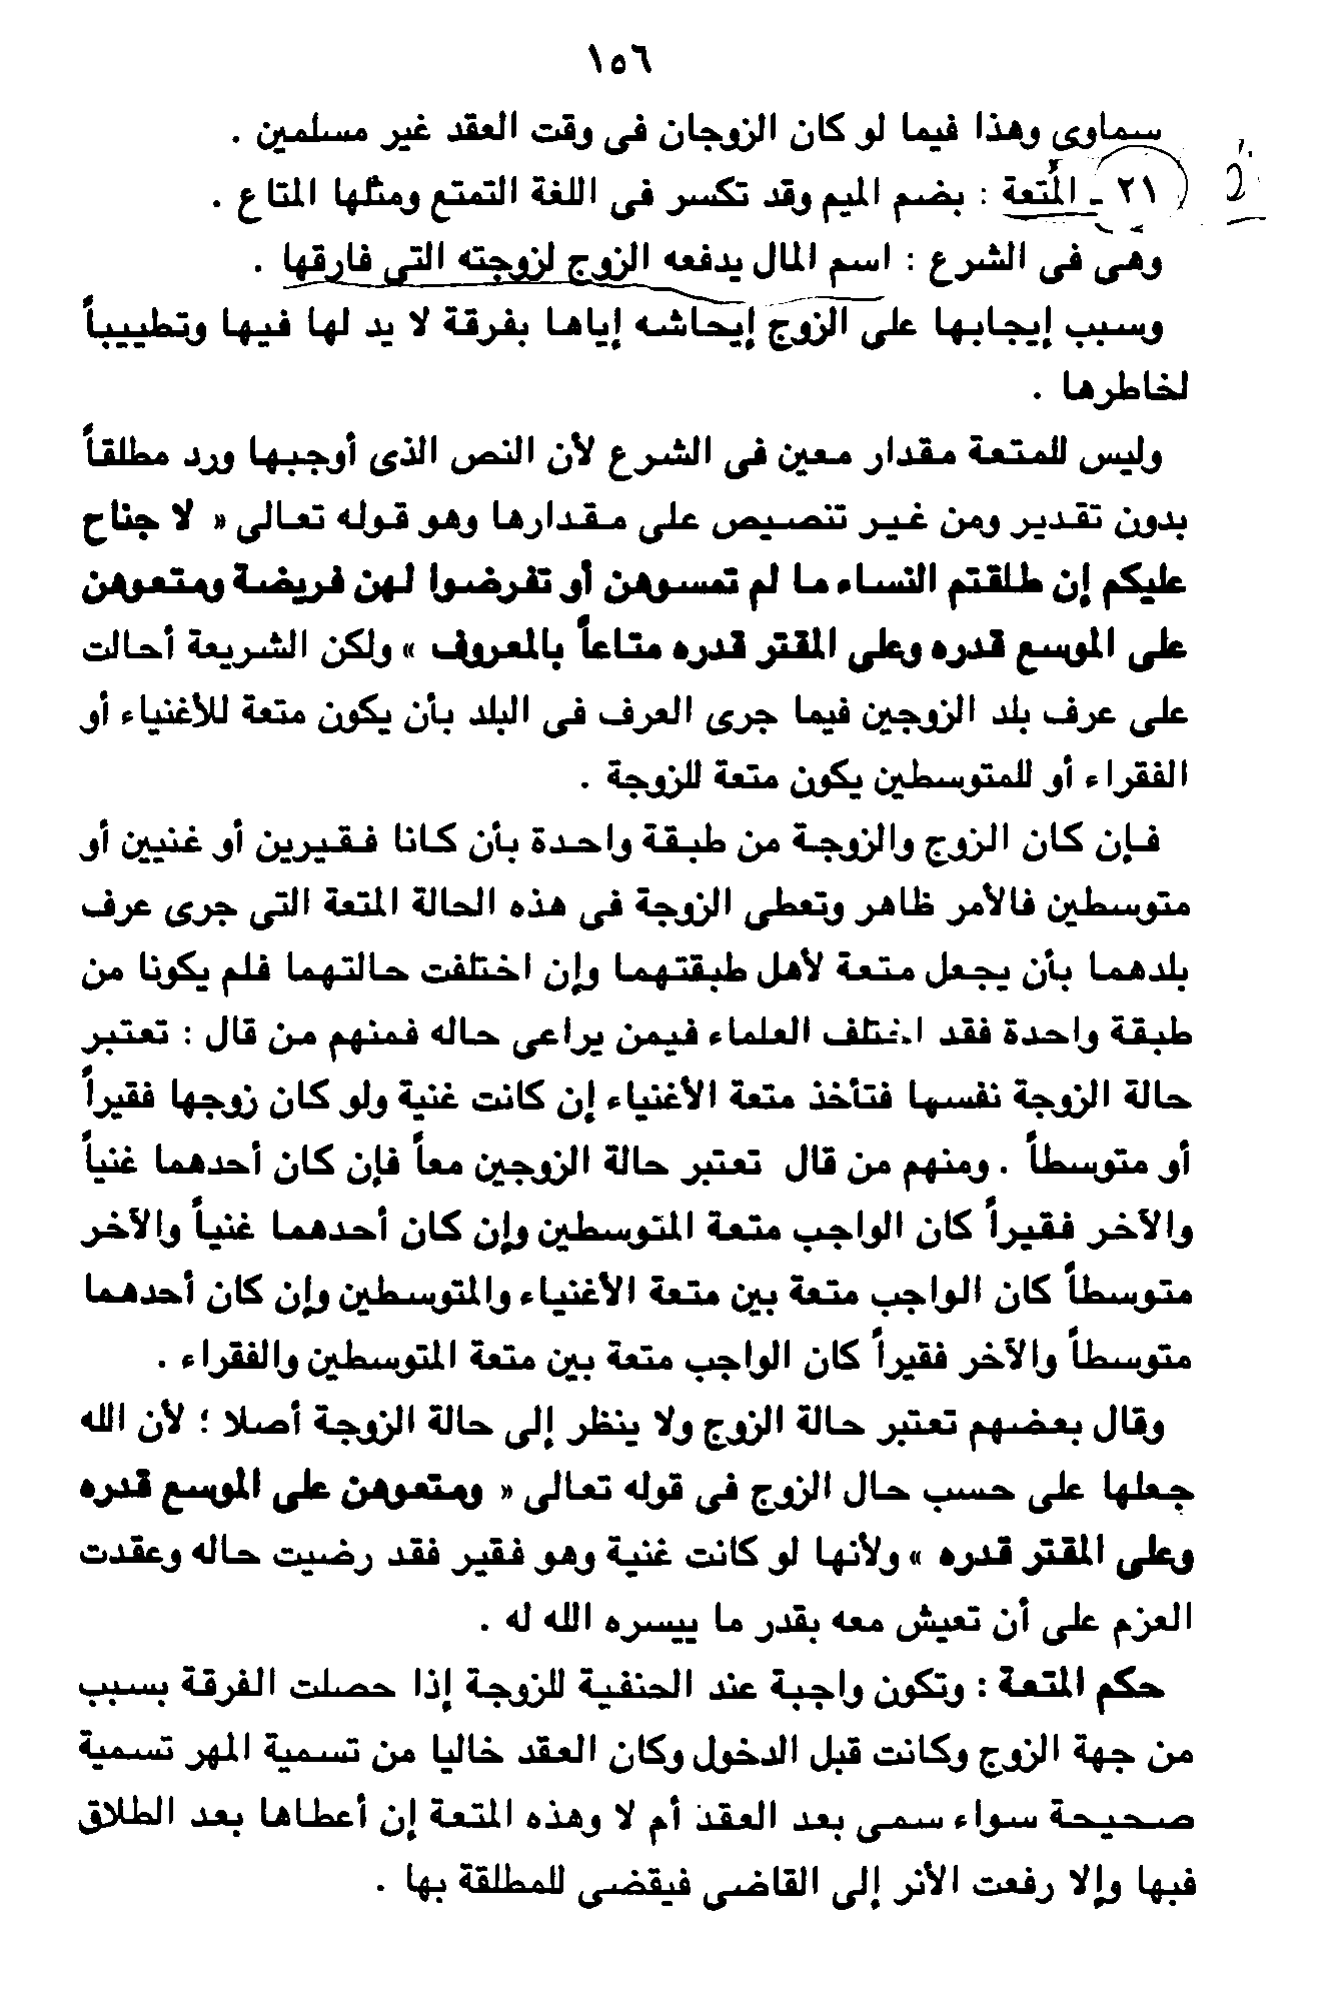 ١٥٦
سماوى وهذا فيما لو كان الزوجان فى وقت العقد غير مسلمين .
٢١ ـ المُتعة : بضم الميم وقد تكسر فى اللغة التمتع ومثلها المتاع .
وهى فى الشرع : اسم المال يدفعه الزوج لزوجته التى فارقها .
وسبب إيجابها على الزوج إيحاشه إياها بفرقة لا يد لها فيها وتطييباً
لخاطرها .
وليس للمتعة مقدار معين فى الشرع لأن النص الذى أوجبها ورد مطلقاً
بدون تقدير ومن غير تنصيص على مقدارها وهو قوله تعالى « لا جناح
عليكم إن طلقتم النساء ما لم تمسوهن أو تفرضوا لهن فريضة ومتعوهن
على الموسع قدره وعلى المقتر قدره متاعاً بالمعروف » ولكن الشريعة أحالت
على عرف بلد الزوجين فيما جرى العرف فى البلد بأن يكون متعة للأغنياء أو
الفقراء أو للمتوسطين يكون متعة للزوجة .
فإن كان الزوج والزوجة من طبقة واحدة بأن كانا فقيرين أو غنيين أو
متوسطين فالأمر ظاهر وتعطى الزوجة فى هذه الحالة المتعة التى جرى عرف
بلدهما بأن يجعل متعة لأهل طبقتهما وإن اختلفت حالتهما فلم يكونا من
طبقة واحدة فقد اختلف العلماء فيمن يراعى حاله فمنهم من قال : تعتبر
حالة الزوجة نفسها فتأخذ متعة الأغنياء إن كانت غنية ولو كان زوجها فقيراً
أو متوسطاً . ومنهم من قال تعتبر حالة الزوجين معاً فإن كان أحدهما غنياً
والآخر فقيراً كان الواجب متعة المتوسطين وإن كان أحدهما غنياً والآخر
متوسطاً كان الواجب متعة بين متعة الأغنياء والمتوسطين وإن كان أحدهما
متوسطاً والآخر فقيراً كان الواجب متعة بين متعة المتوسطين والفقراء .
وقال بعضهم تعتبر حالة الزوج ولا ينظر إلى حالة الزوجة أصلا ؛ لأن الله
جعلها على حسب حال الزوج فى قوله تعالى « ومتعوهن على الموسع قدره
وعلى المقتر قدره » ولأنها لو كانت غنية وهو فقير فقد رضيت حاله وعقدت
العزم على أن تعيش معه بقدر ما ييسره الله له .
حكم المتعة : وتكون واجبة عند الحنفية للزوجة إذا حصلت الفرقة بسبب
من جهة الزوج وكانت قبل الدخول وكان العقد خاليا من تسمية المهر تسمية
صحيحة سواء سمى بعد العقد أم لا وهذه المتعة إن أعطاها بعد الطلاق
فبها وإلا رفعت الأنر إلى القاضى فيقضى للمطلقة بها .